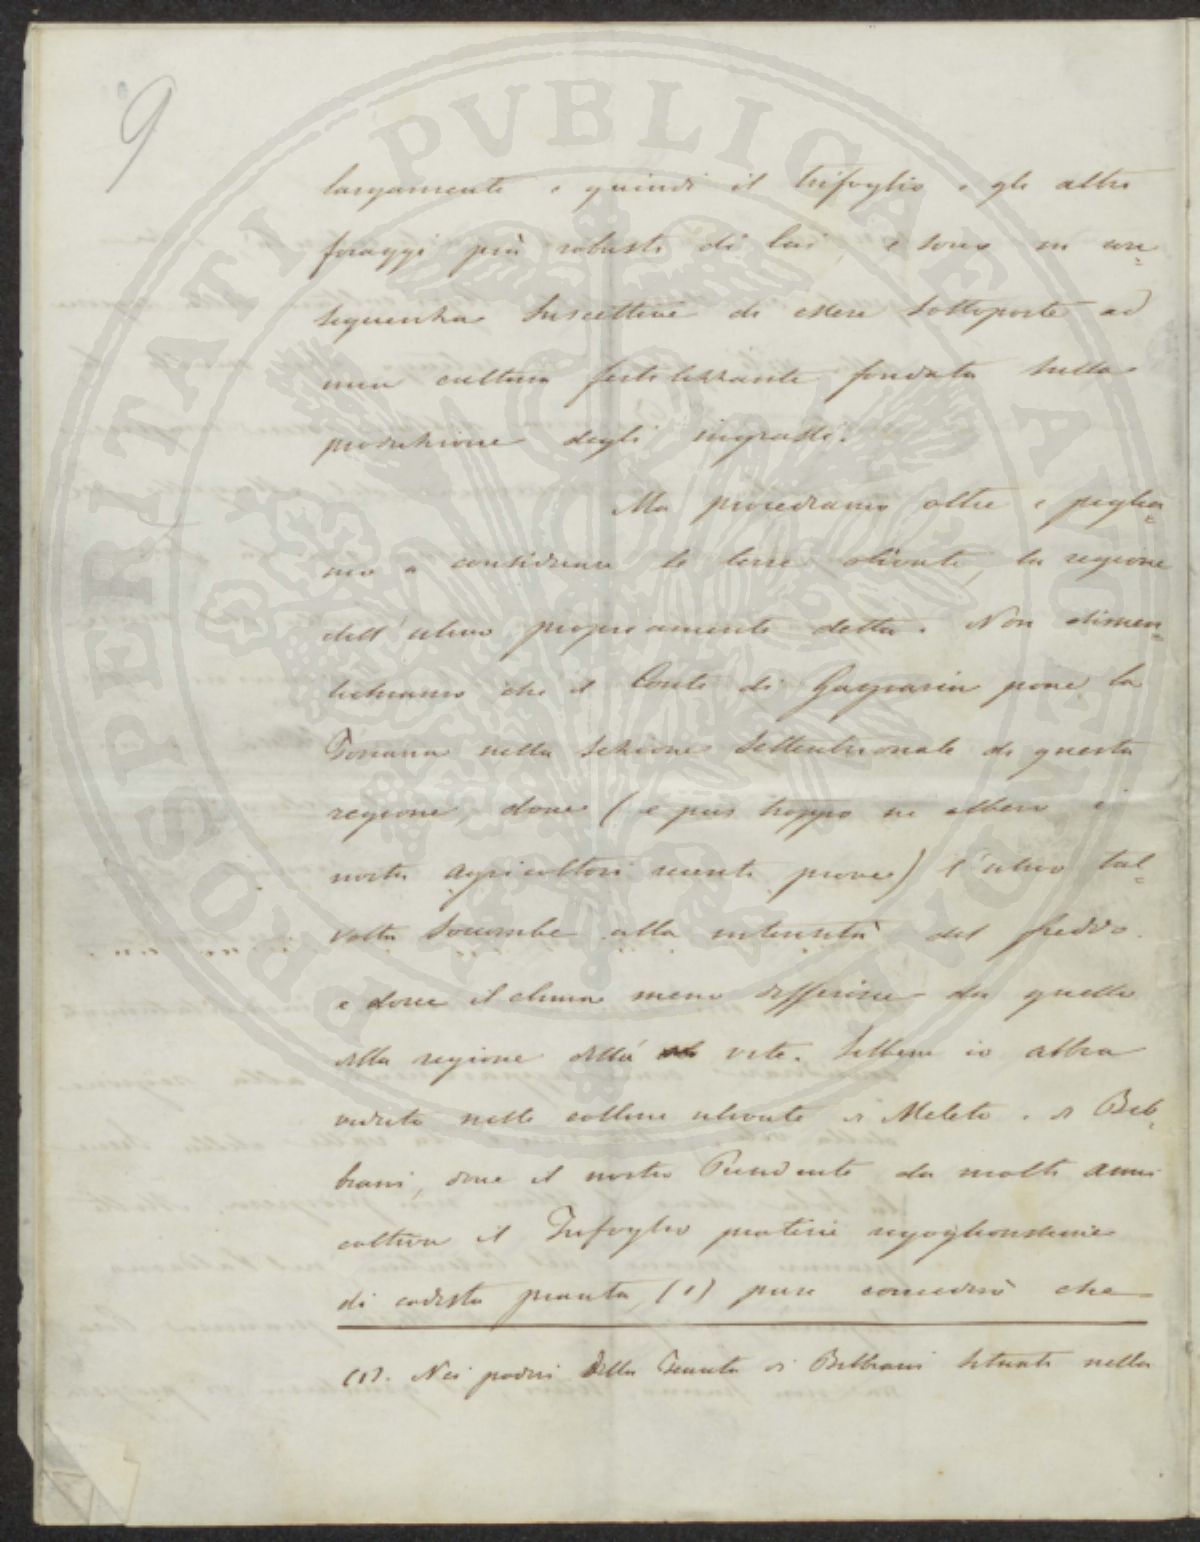 9
largamente e quindi il trifoglio e gli altri
foraggi più robusti di lui, e sono in con=
seguenza suscettive di essere sottoposte ad
una cultura fertilizzante fondata sulla
produzione degli ingrassi.
Ma procediamo oltre e poglia=
mo a considerare le terre olivate, la regione
dell'ulivo propriamente detta. Non dimen=
tichiamo che il Conte di Gasparin pone la
Toscana nella sezione settentrionale di questa
regione, dove (e pur troppo ne ebbero i
nostri agricoltori recenti prove) l'ulivo tal=
volta soccombe alla intensità del freddo.
e dove il clima meno differisce da quello
della regione della vite. Sebbene io abbia
veduto nelle colline ulivate di Meleto e di Bib=
biani, dove il nostro Presidente da molti anni
coltiva il Trifoglio pratense
di codesta pianta (1) pure concederò che
(1). Nei poderi della Tenuta di Bibbiani situati nella
PROSPERITATI PVBLICAE AVGENDAE